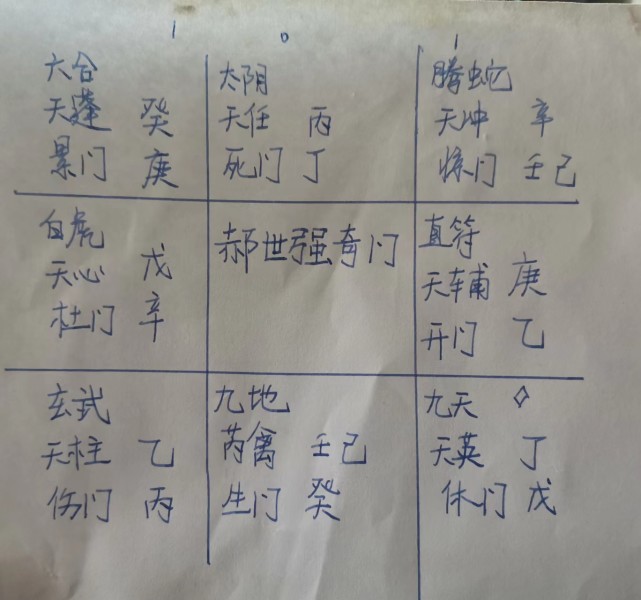 1 0 1
六合
天蓬 癸
景门 庚
太阴
天任 丙
死门 丁
腾蛇
天冲 辛
惊门 壬己
白虎
天心 戊
杜门 辛
郝世强奇门
直符
天辅 庚
开门 乙
玄武
天柱 乙
伤门 丙
九地
芮禽 壬己
生门 癸
九天
天英 丁
休门 戊